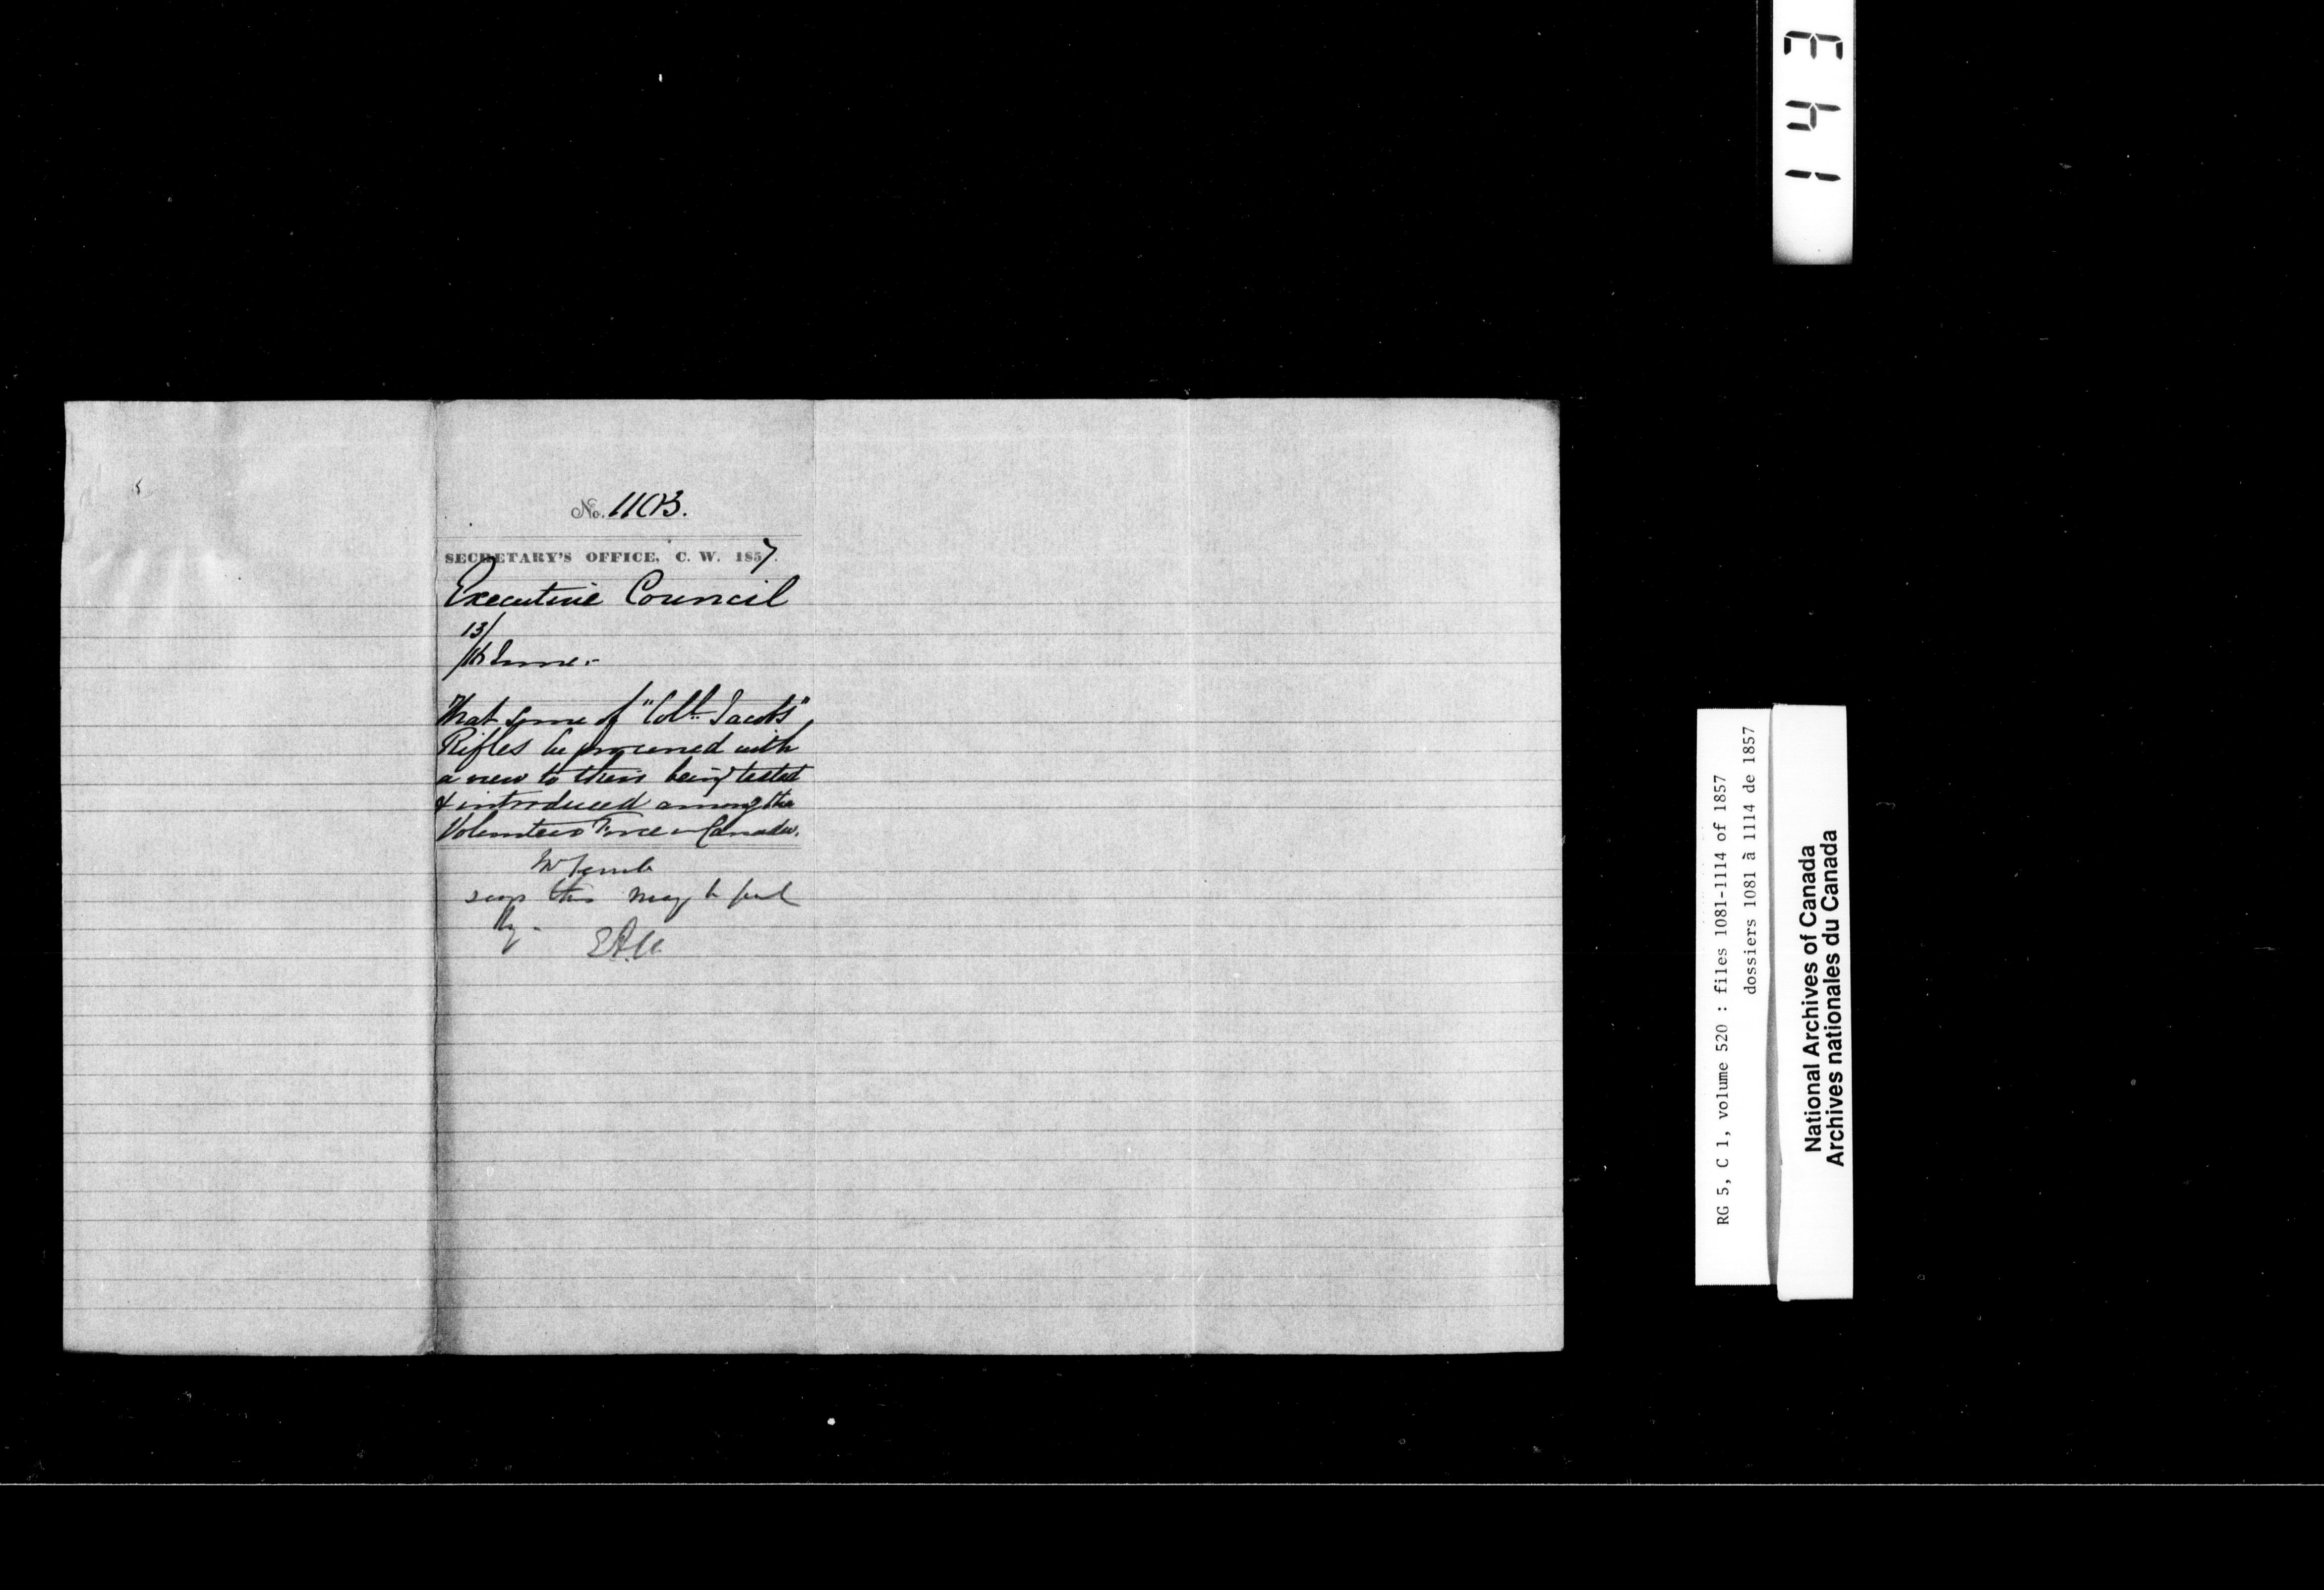 No. 1103.
SECRETARY'S OFFICE, C. W. 1857.
Executive Council
13/
June.-
That some of "Coll. Jacob's"
Rifles be procured with
a view to their being tested
& introduced among the
Volunteer Force in Canada.
Mr
says this may be put
by.
143
RG 5, C 1, volume 520 : files 1081-1114 of 1857
dossiers 1081 à 1114 de 1857
National Archives of Canada
Archives nationales du Canada